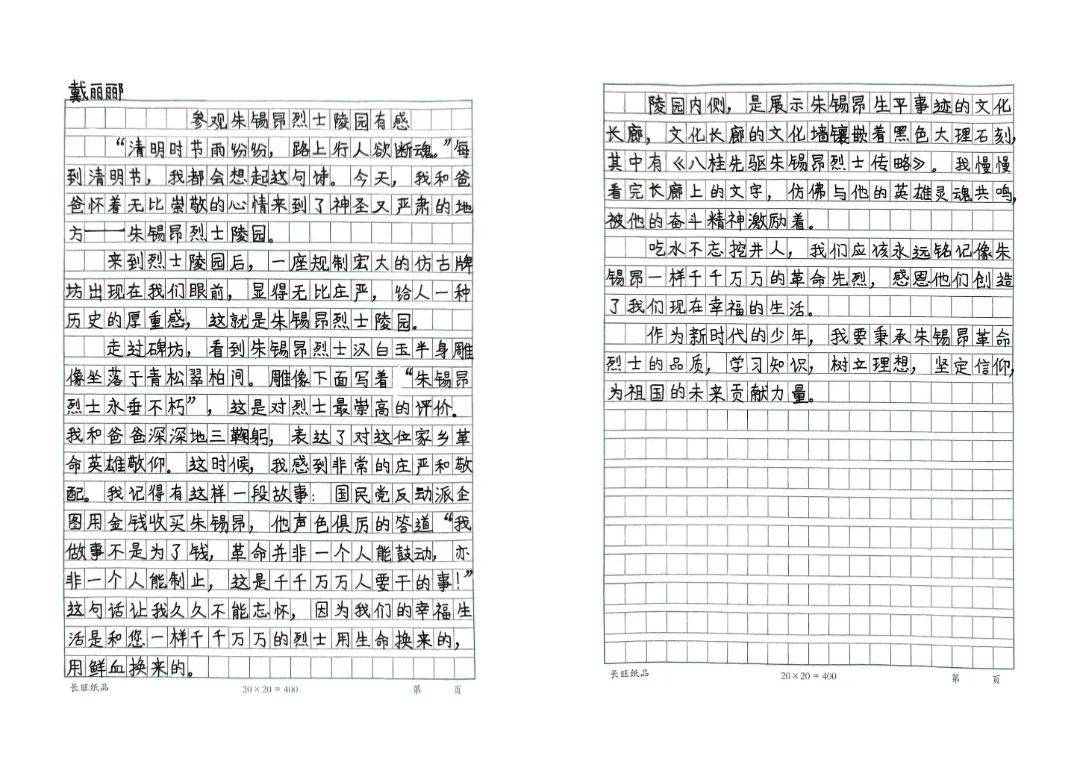 戴丽郦
参观朱锡昂烈士陵园有感
“清明时节雨纷纷，路上行人欲断魂。”每
到清明节，我都会想起这句诗。今天，我和爸
爸怀着无比崇敬的心情来到了神圣又严肃的地
方——朱锡昂烈士陵园。
来到烈士陵园后，一座规制宏大的仿古牌
坊出现在我们眼前，显得无比庄严，给人一种
历史的厚重感，这就是朱锡昂烈士陵园。
走过碑坊，看到朱锡昂烈士汉白玉半身雕
像坐落于青松翠柏间。雕像下面写着“朱锡昂
烈士永垂不朽”，这是对烈士最崇高的评价。
我和爸爸深深地三鞠躬，表达了对这位家乡革
命英雄敬仰。这时候，我感到非常的庄严和敬
配。我记得有这样一段故事：国民党反动派企
图用金钱收买朱锡昂，他声色俱厉的答道“我
做事不是为了钱，革命并非一个人能鼓动，亦
非一个人能制止，这是千千万万人要干的事！”
这句话让我久久不能忘怀，因为我们的幸福生
活是和您一样千千万万的烈士用生命换来的，
用鲜血换来的。
长旺纸品 20×20=400 第 页
陵园内侧，是展示朱锡昂生平事迹的文化
长廊，文化长廊的文化墙镶嵌着黑色大理石刻，
其中有《八桂先驱朱锡昂烈士传略》。我慢慢
看完长廊上的文字，仿佛与他的英雄灵魂共鸣，
被他的奋斗精神激励着。
吃水不忘挖井人，我们应该永远铭记像朱
锡昂一样千千万万的革命先烈，感恩他们创造
了我们现在幸福的生活。
作为新时代的少年，我要秉承朱锡昂革命
烈士的品质，学习知识，树立理想，坚定信仰，
为祖国的未来贡献力量。
长旺纸品 20×20=400 第 页